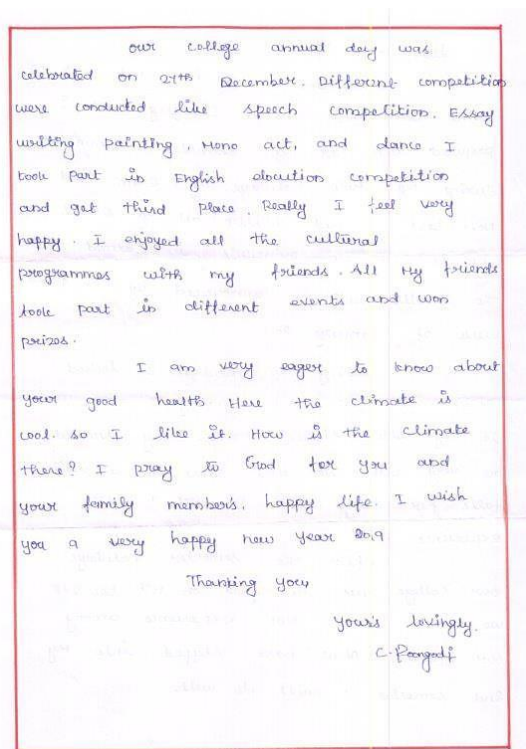 Our college annual day was
celebrated on 27th December. Different competition
were conducted like speech competition. Essay
writing painting, Mono act, and dance. I
took part in English elocution competition
and got third place. Really I feel very
happy. I enjoyed all the cultural
programmes with my friends. All My friends
took part in different events and won
prizes.
I am very eager to know about
your good health. Here the climate is
cool. so I like it. How is the climate
there? I pray to God for you and
your family member's. happy life. I wish
you a very happy new year 2019
Thanking you,
your's lovingly.
C. Poongodi